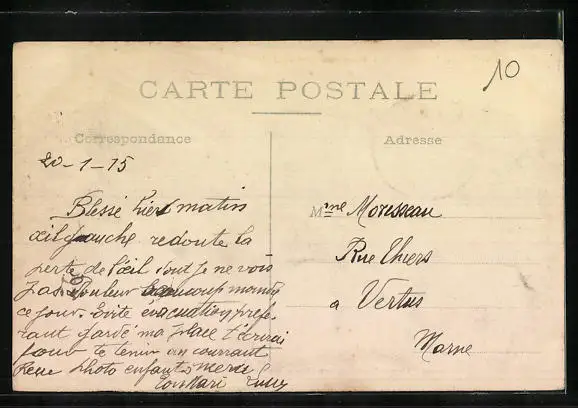 10
CARTE POSTALE
Correspondance
Adresse
20-1-15
Blessé hier matin
œil gauche redoute la
perte de l'œil dont je ne vois
pas douleur beaucoup moindre
ce jour. Evite evacuation prefe
rant garde ma place t'ecrirai
pour te tenir au courant
Reçu photo enfants merci
ton Mari
Mme Moresseau
Rue Thiers
a Vertus
Marne